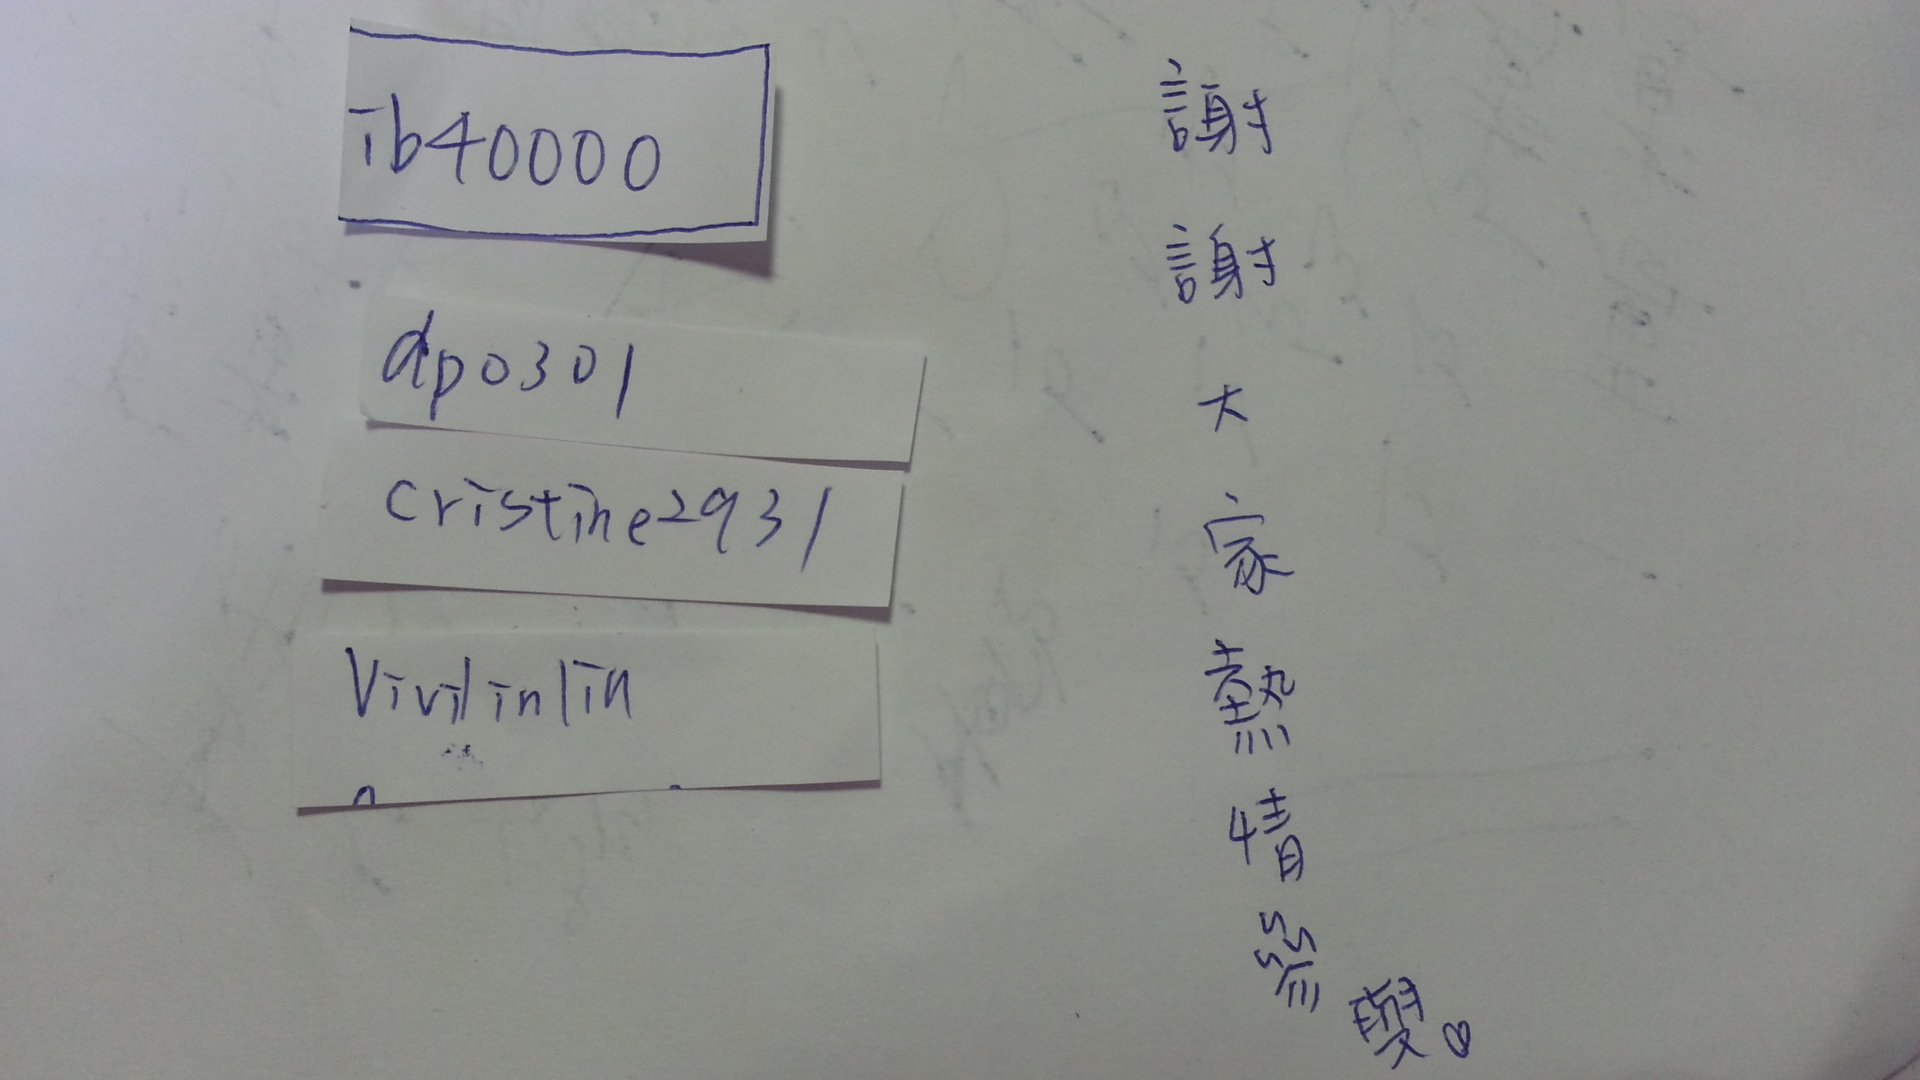 ib40000
dp0301
cristine2931
Vivilinlin
謝謝大家熱情參與。